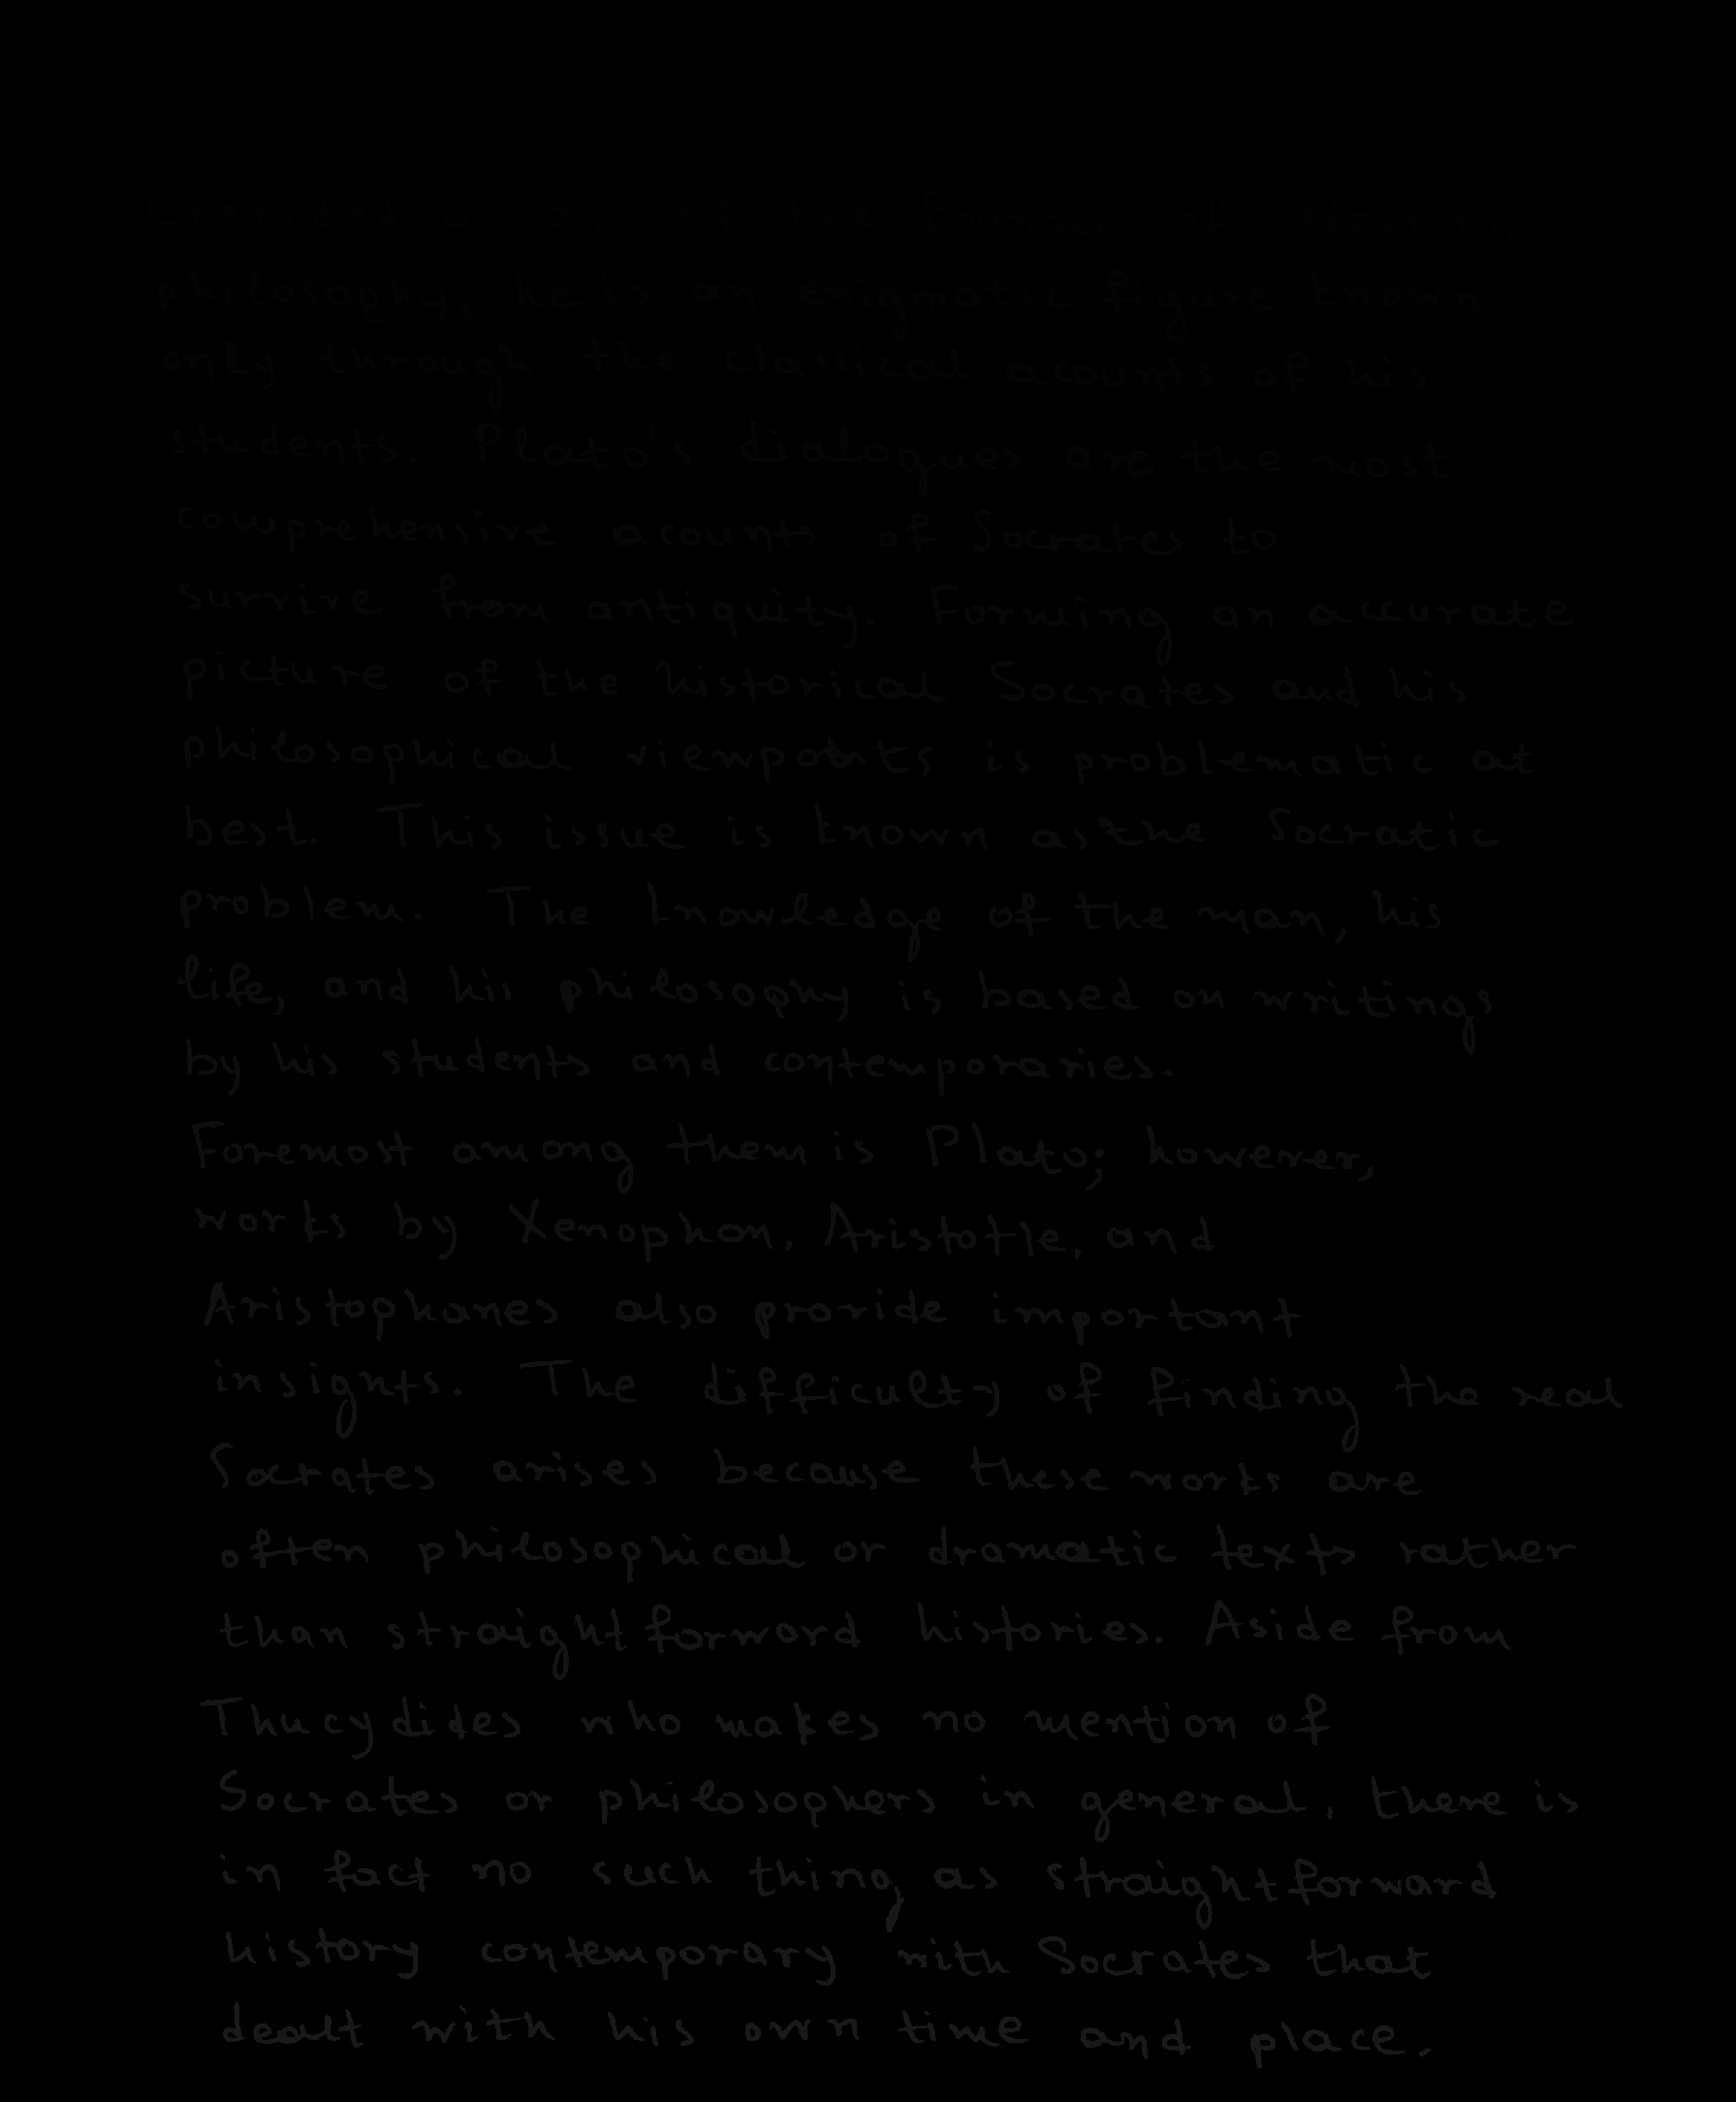 Cretided as one of the founders of Western
philosophy, he is an enigmatic figure known
only through the classical acounts of his
students. Plato's dialogues are the most
comprehensive acounts of Socrates to
survive from antiquity. Forming an accurate
picture of the historical Socrates and his
philosophical viewpoints is problematic at
best. This issue is known as the Socratic
problem. The knowledge of the man, his
life, and his philosophy is based on writings
by his students and contemporaries.
Foremost among them is Plato; however,
works by Xenophon, Aristotle, and
Aristophanes also provide important
insights. The difficulty of finding the real
Socrates arises because these works are
often philosophical or dramatic texts rather
than straightforward histories. Aside from
Thucydides who makes no mention of
Socrates or philosophers in general, there is
in fact no such thing as straightforward
history contemporary with Socrates that
dealt with his own time and place.